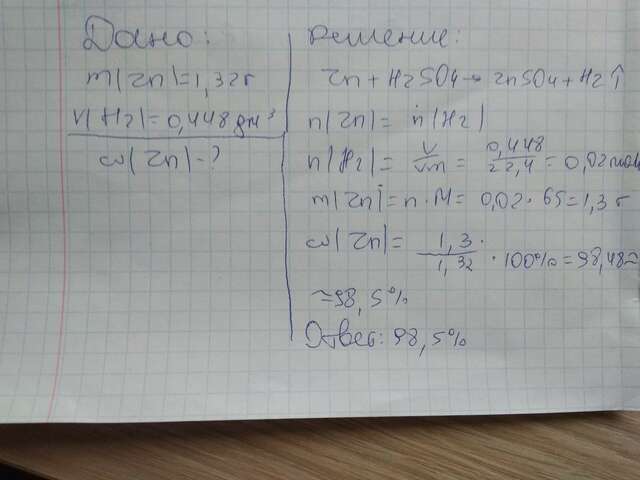 Дано:
m(Zn)=1,32г
V(H2)=0,448дм³
ω(Zn)-?
Решение:
Zn+H2SO4→ZnSO4+H2↑
n(Zn)= n(H2)
n(H2)= V/Vm = 0,448/22,4 = 0,02 моль
m(Zn)=n·M= 0,02·65=1,3 г
ω(Zn)= 1,3/1,32 · 100%=98,48≈
≈98,5%
Ответ: 98,5%